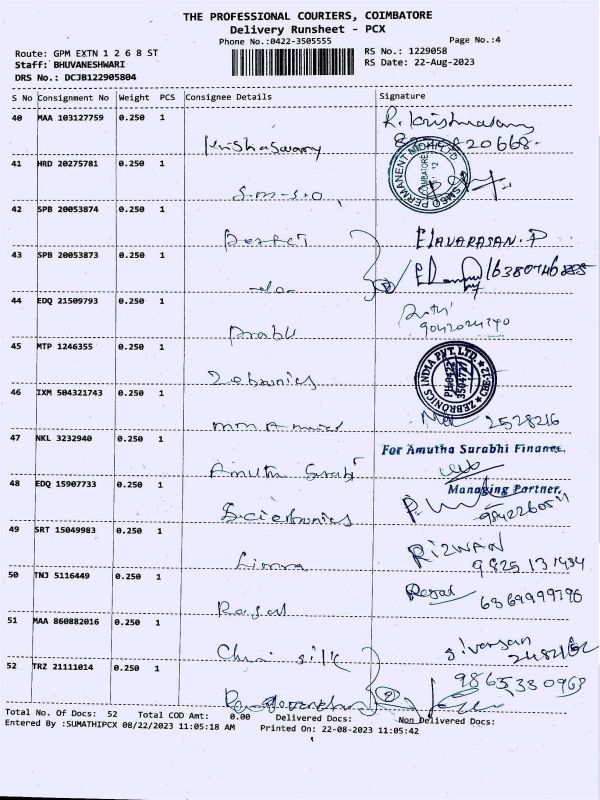 THE PROFESSIONAL COURIERS, COIMBATORE
Delivery Runsheet - PCX
Phone No.:0422-3505555 Page No.:4
Route: GPM EXTN 1 2 6 8 ST RS No.: 1229058
Staff: BHUVANESHWARI RS Date: 22-Aug-2023
DRS No.: DCJB122905804
S No Consignment No Weight PCS Consignee Details Signature
40 MAA 103127759 0.250 1 R. Krishnasamy
Krishaswamy
41 HRD 20275781 0.250 1
S.M.S.O
42 SPB 20053874 0.250 1
Perfect ELAVARASAN.P
43 SPB 20053873 0.250 1
-do-
44 EDQ 21509793 0.250 1
Prabu 9042024740
45 MTP 1246355 0.250 1
Zebronics
46 IXM 504321743 0.250 1
2528216
47 NKL 3232940 0.250 1 For Amutha Surabhi Finance.
Amutha Surabi
48 EDQ 15907733 0.250 1 Managing Partner.
49 SRT 15049983 0.250 1 RIZWAN
Limra 9825131434
50 TNJ 5116449 0.250 1
51 MAA 860882016 0.250 1
silk
52 TRZ 21111014 0.250 1 9865330963
Total No. Of Docs: 52 Total COD Amt: 0.00 Delivered Docs: Non Delivered Docs:
Entered By :SUMATHIPCX 08/22/2023 11:05:18 AM Printed On: 22-08-2023 11:05:42